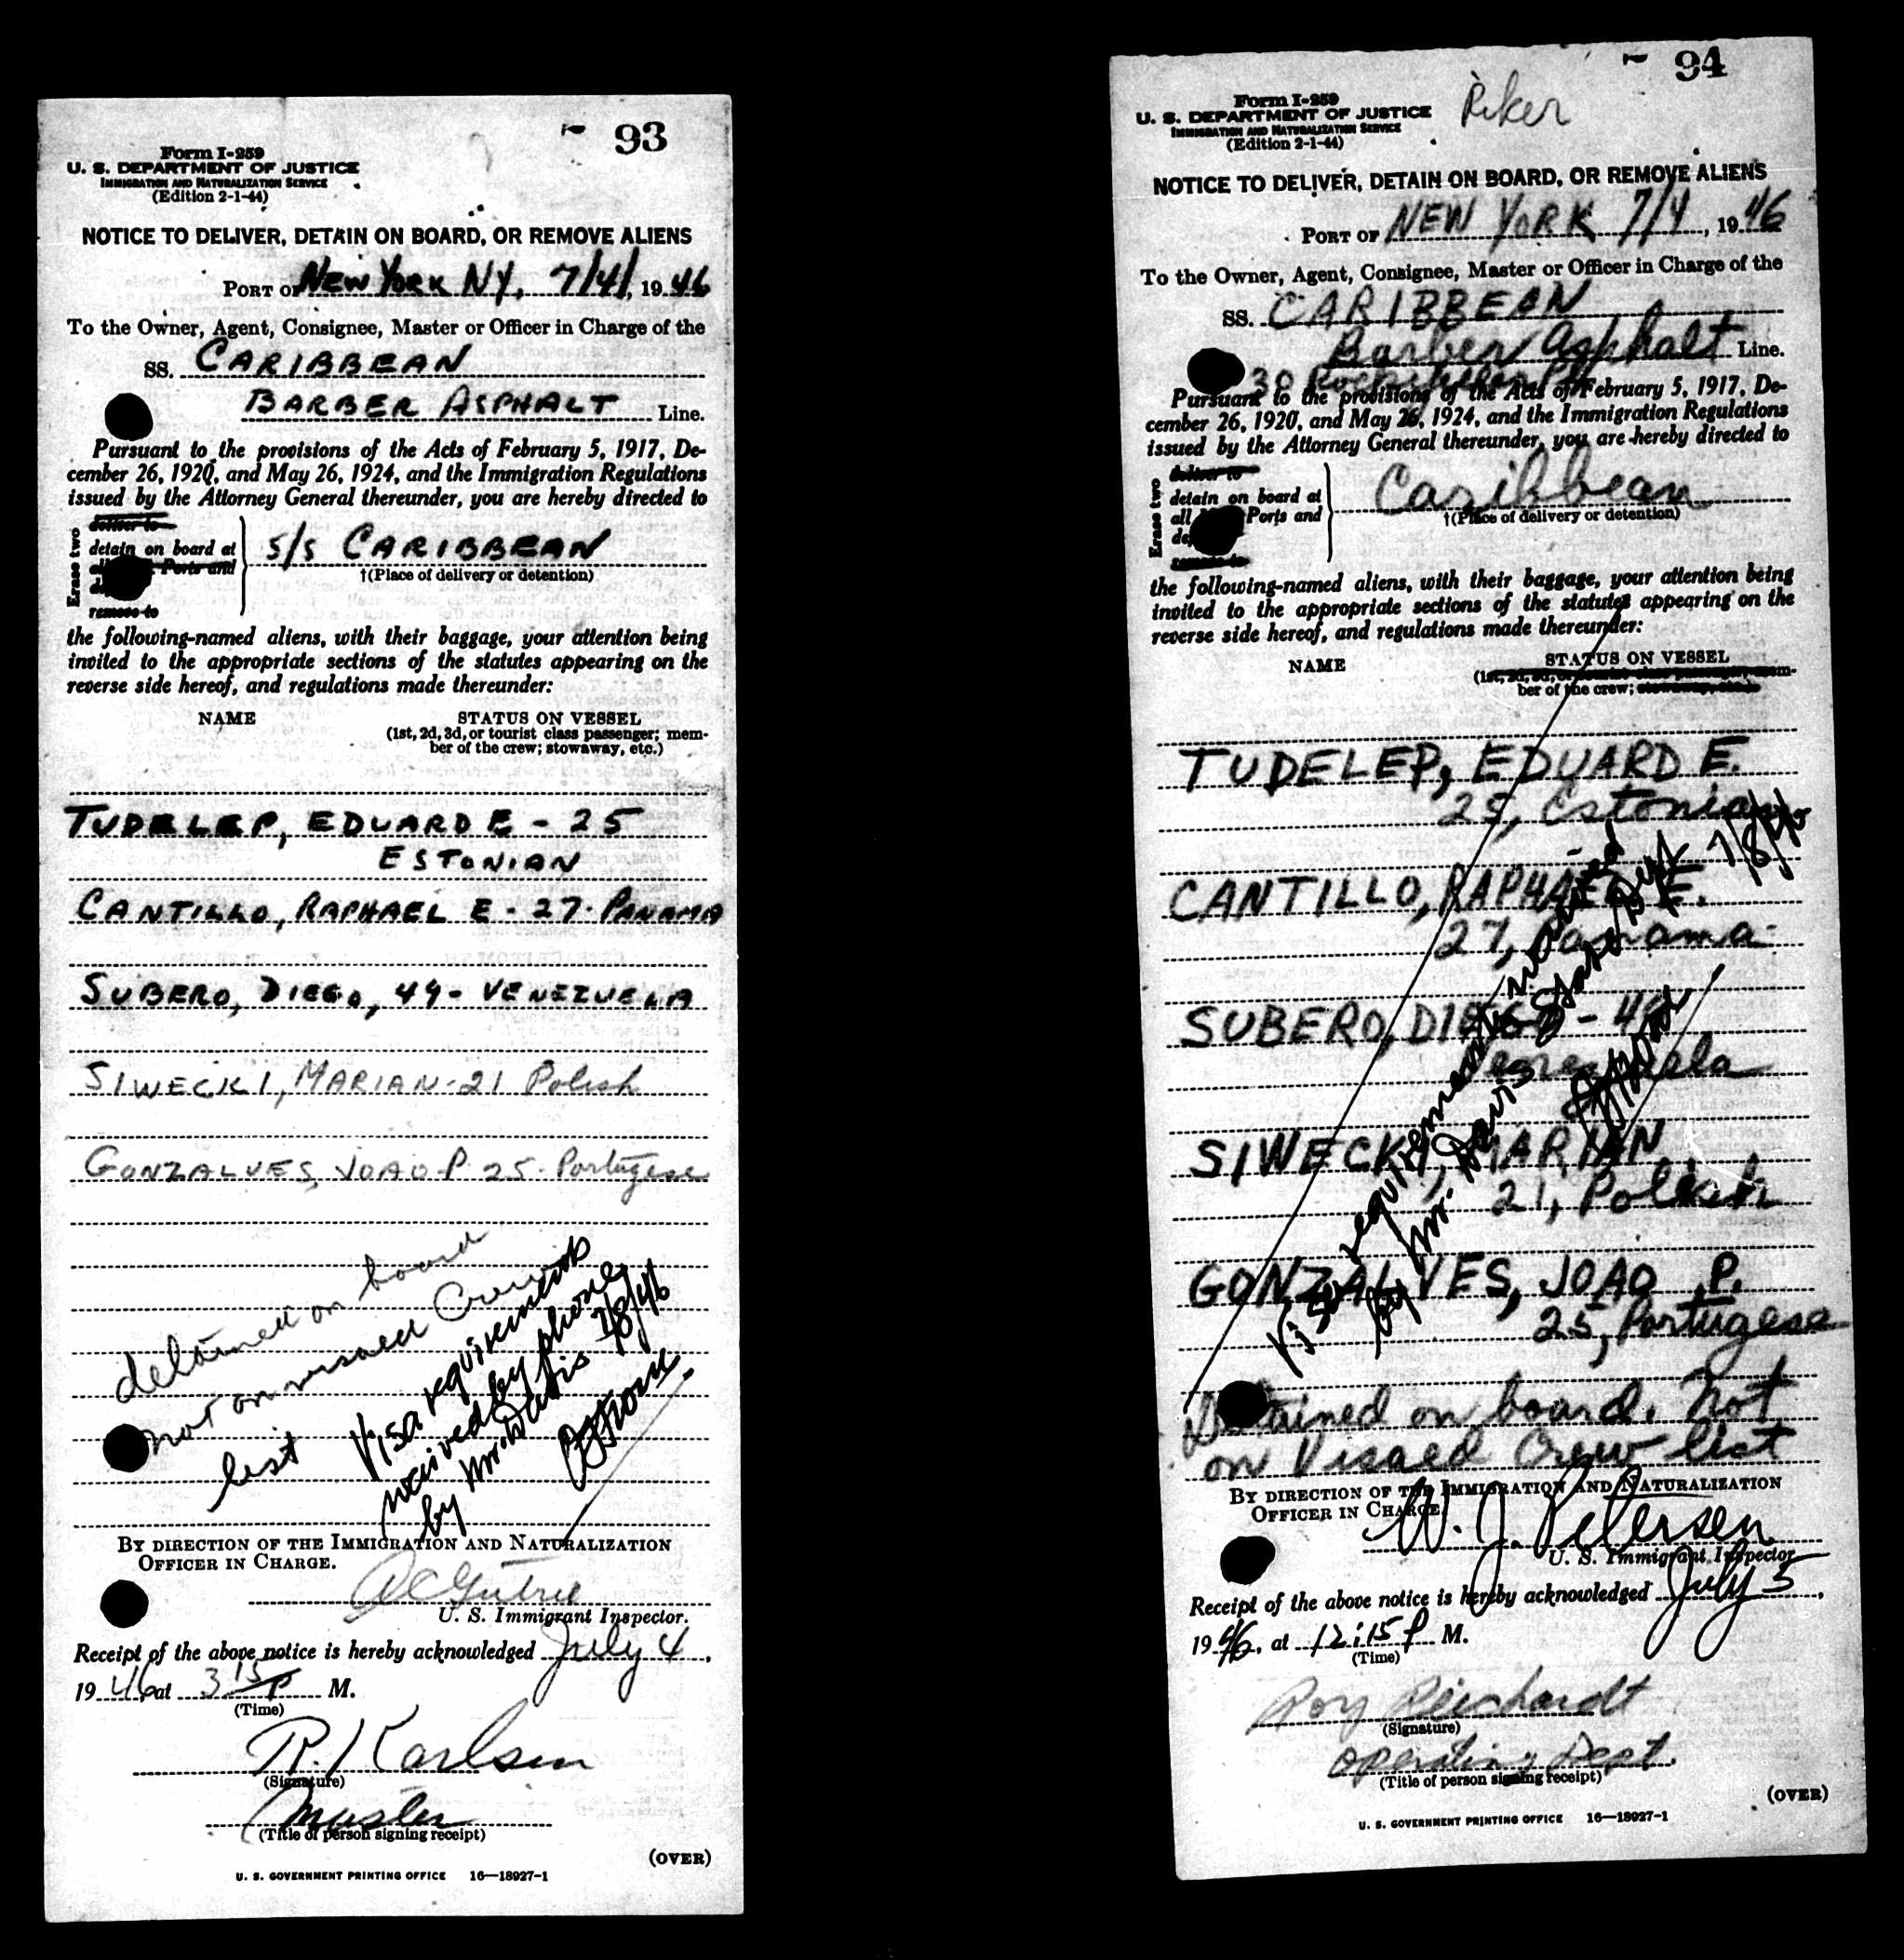 93
Form I-259
U. S. DEPARTMENT OF JUSTICE
IMMIGRATION AND NATURALIZATION SERVICE
(Edition 2-1-44)
NOTICE TO DELIVER, DETAIN ON BOARD, OR REMOVE ALIENS
PORT OF NEW YORK NY, 7/4/, 1946
To the Owner, Agent, Consignee, Master or Officer in Charge of the
SS. CARIBBEAN
BARBER ASPHALT Line.
Pursuant to the provisions of the Acts of February 5, 1917, De-
cember 26, 1920, and May 26, 1924, and the Immigration Regulations
issued by the Attorney General thereunder, you are hereby directed to
Erase two
deliver to
detain on board at
Ports and
remove to
S/S CARIBBEAN
†(Place of delivery or detention)
the following-named aliens, with their baggage, your attention being
invited to the appropriate sections of the statutes appearing on the
reverse side hereof, and regulations made thereunder:
NAME STATUS ON VESSEL
(1st, 2d, 3d, or tourist class passenger; mem-
ber of the crew; stowaway, etc.)
TUDELEP, EDUARD E - 25
ESTONIAN
CANTILLO, RAPHAEL E - 27 - PANAMA
SUBERO, DIEGO, 49 - VENEZUELA
SIWECKI, MARIAN - 21 Polish
GONZALVES, JOAO P 25 - Portugese
detained on board
not on visaed Crew
list
Visa requirements
waived by phone
by Mr. Davis 7/8/46
BY DIRECTION OF THE IMMIGRATION AND NATURALIZATION
OFFICER IN CHARGE.
U. S. Immigrant Inspector.
Receipt of the above notice is hereby acknowledged July 4,
1946 at 3 15 P M.
(Time)
R. Karlsen
(Signature)
Master
(Title of person signing receipt)
(OVER)
U. S. GOVERNMENT PRINTING OFFICE 16—18927-1
94
Form I-259
U. S. DEPARTMENT OF JUSTICE
IMMIGRATION AND NATURALIZATION SERVICE
(Edition 2-1-44)
Riker
NOTICE TO DELIVER, DETAIN ON BOARD, OR REMOVE ALIENS
PORT OF NEW YORK 7/4, 1946
To the Owner, Agent, Consignee, Master or Officer in Charge of the
SS. CARIBBEAN
Barber Asphalt Line.
30 Rockefeller
Pursuant to the provisions of the Acts of February 5, 1917, De-
cember 26, 1920, and May 26, 1924, and the Immigration Regulations
issued by the Attorney General thereunder, you are hereby directed to
Erase two
deliver to
detain on board at
all Ports and
remove to
Caribbean
†(Place of delivery or detention)
the following-named aliens, with their baggage, your attention being
invited to the appropriate sections of the statutes appearing on the
reverse side hereof, and regulations made thereunder:
NAME STATUS ON VESSEL
(1st, 2d, 3d, or tourist class passenger; mem-
ber of the crew; stowaway, etc.)
TUDELEP, EDUARD E.
25, Estonian
CANTILLO, RAPHAEL E.
27, Panama
SUBERO, DIEGO - 49
Venezuela
SIWECKI, MARIAN
21, Polish
GONZALVES, JOAO P.
25, Portugese
Visa requirements waived
by Mr. Davis State Dept 7/8/46
Detained on board. Not
on Visaed Crew list
BY DIRECTION OF THE IMMIGRATION AND NATURALIZATION
OFFICER IN CHARGE.
W. J. Petersen
U. S. Immigrant Inspector.
Receipt of the above notice is hereby acknowledged July 5,
1946, at 12:15 P M.
(Time)
Roy Reichardt
(Signature)
Operating Dept.
(Title of person signing receipt)
(OVER)
U. S. GOVERNMENT PRINTING OFFICE 16—18927-1